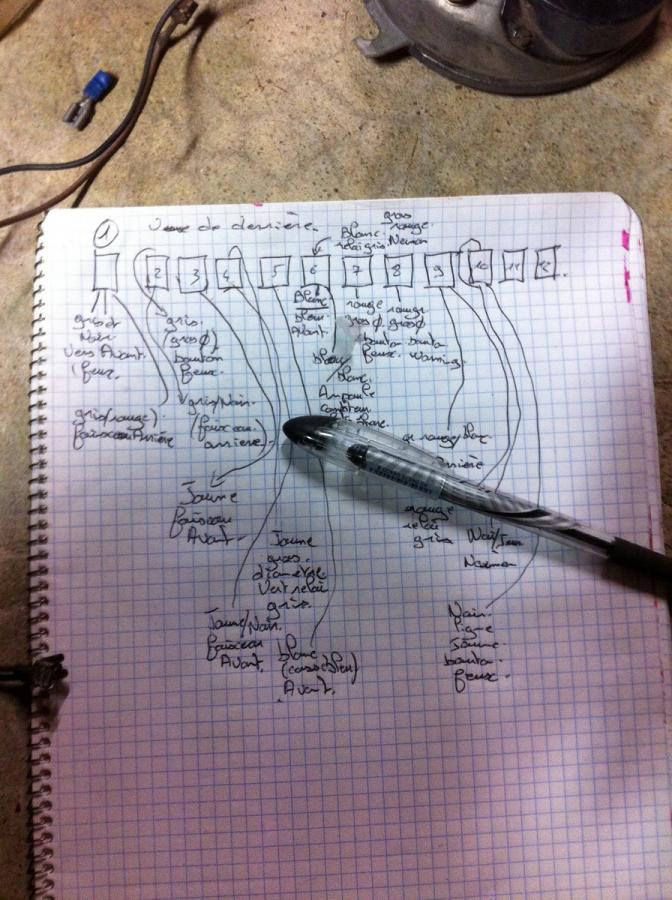 1
Vue de derrière.
gros
Blanc rouge
relai gris Neiman
2 3 4 5 6 7 8 9 10 11 12
gris et
Noir
Vers Avant
feux.
gris/rouge)
faisceau Arrière
gris.
(gros Ø)
bouton
feux.
gris/Noir.
(faisceau
arriere)
Jaune
faisceau
Avant.
Jaune/Noir.
faisceau
Avant.
Jaune
gros
diamètre
Vert relai
gris.
blanc
(cassé bleu)
Avant.
Blanc
bleu
Avant
bleu/
blanc.
Ampoule
compteur
rouge
gros Ø
bouton
feux.
rouge
gros Ø
bouton
warning.
rouge/blanc
Arrière
rouge
relai
gris
Noir/
Neiman
Noir.
ligne
Jaune.
bouton
feux.